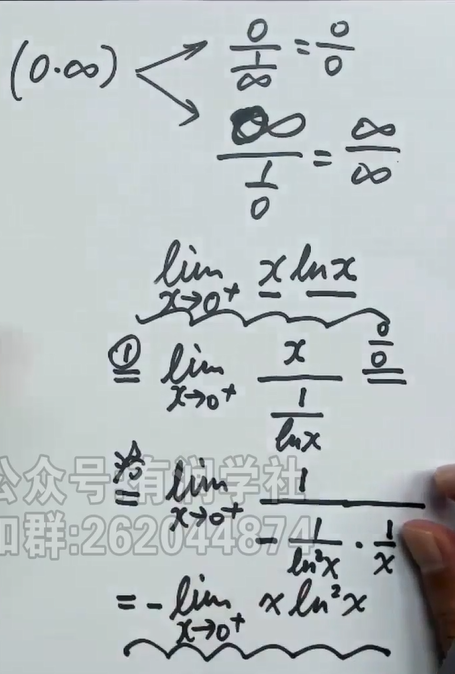 (0·∞) 0/(1/∞) = 0/0
∞/(1/0) = ∞/∞
lim x→0⁺ x ln x
①= lim x→0⁺ x/(1/ln x) 0/0
洛= lim x→0⁺ 1/(-1/ln²x · 1/x)
= -lim x→0⁺ x ln²x
公众号:有惘学社
扣群:262044874